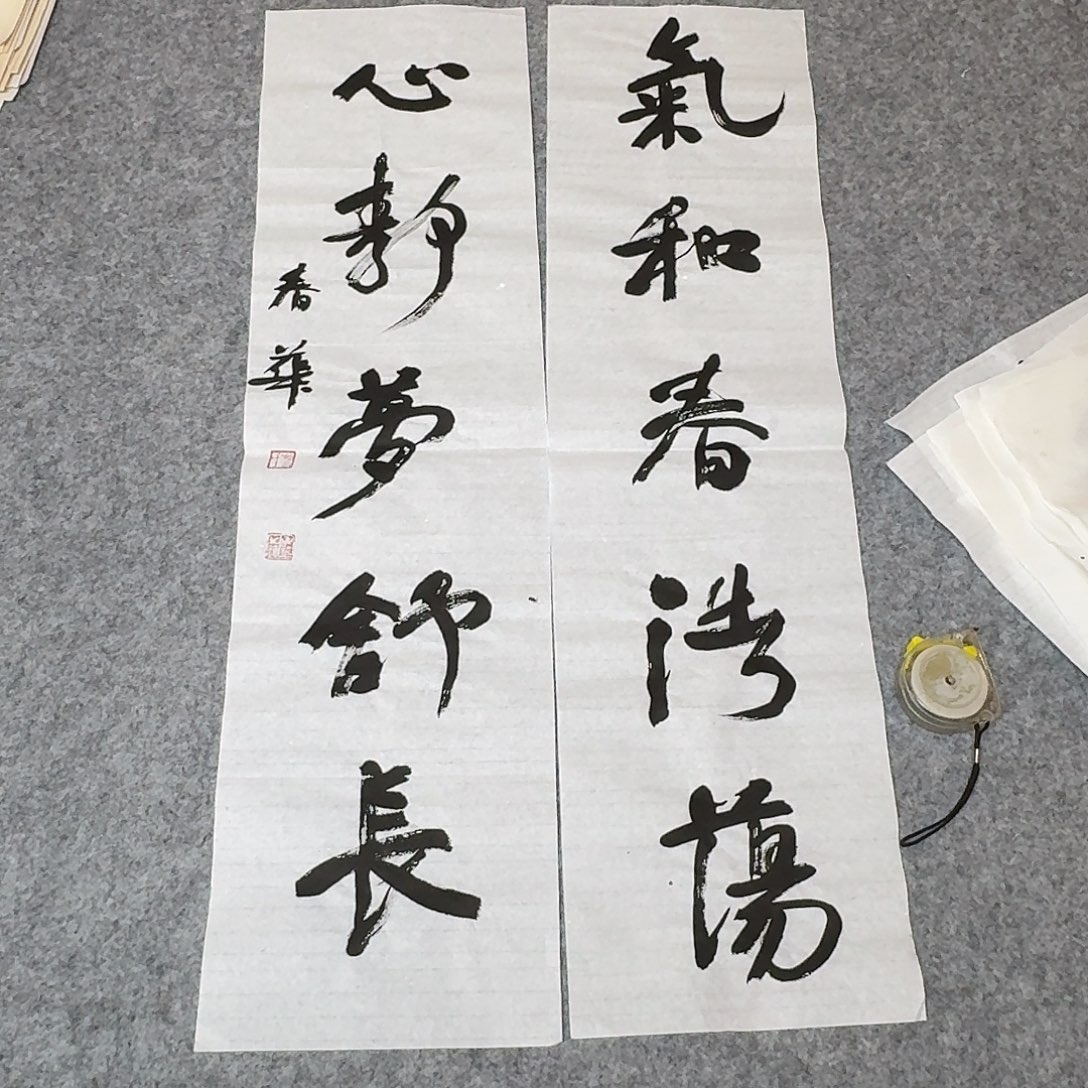 氣和春浩蕩
心靜夢舒長
春華